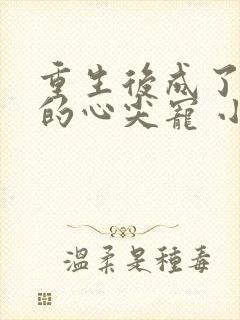 重生後成了
的心尖寵 小
溫柔是種毒